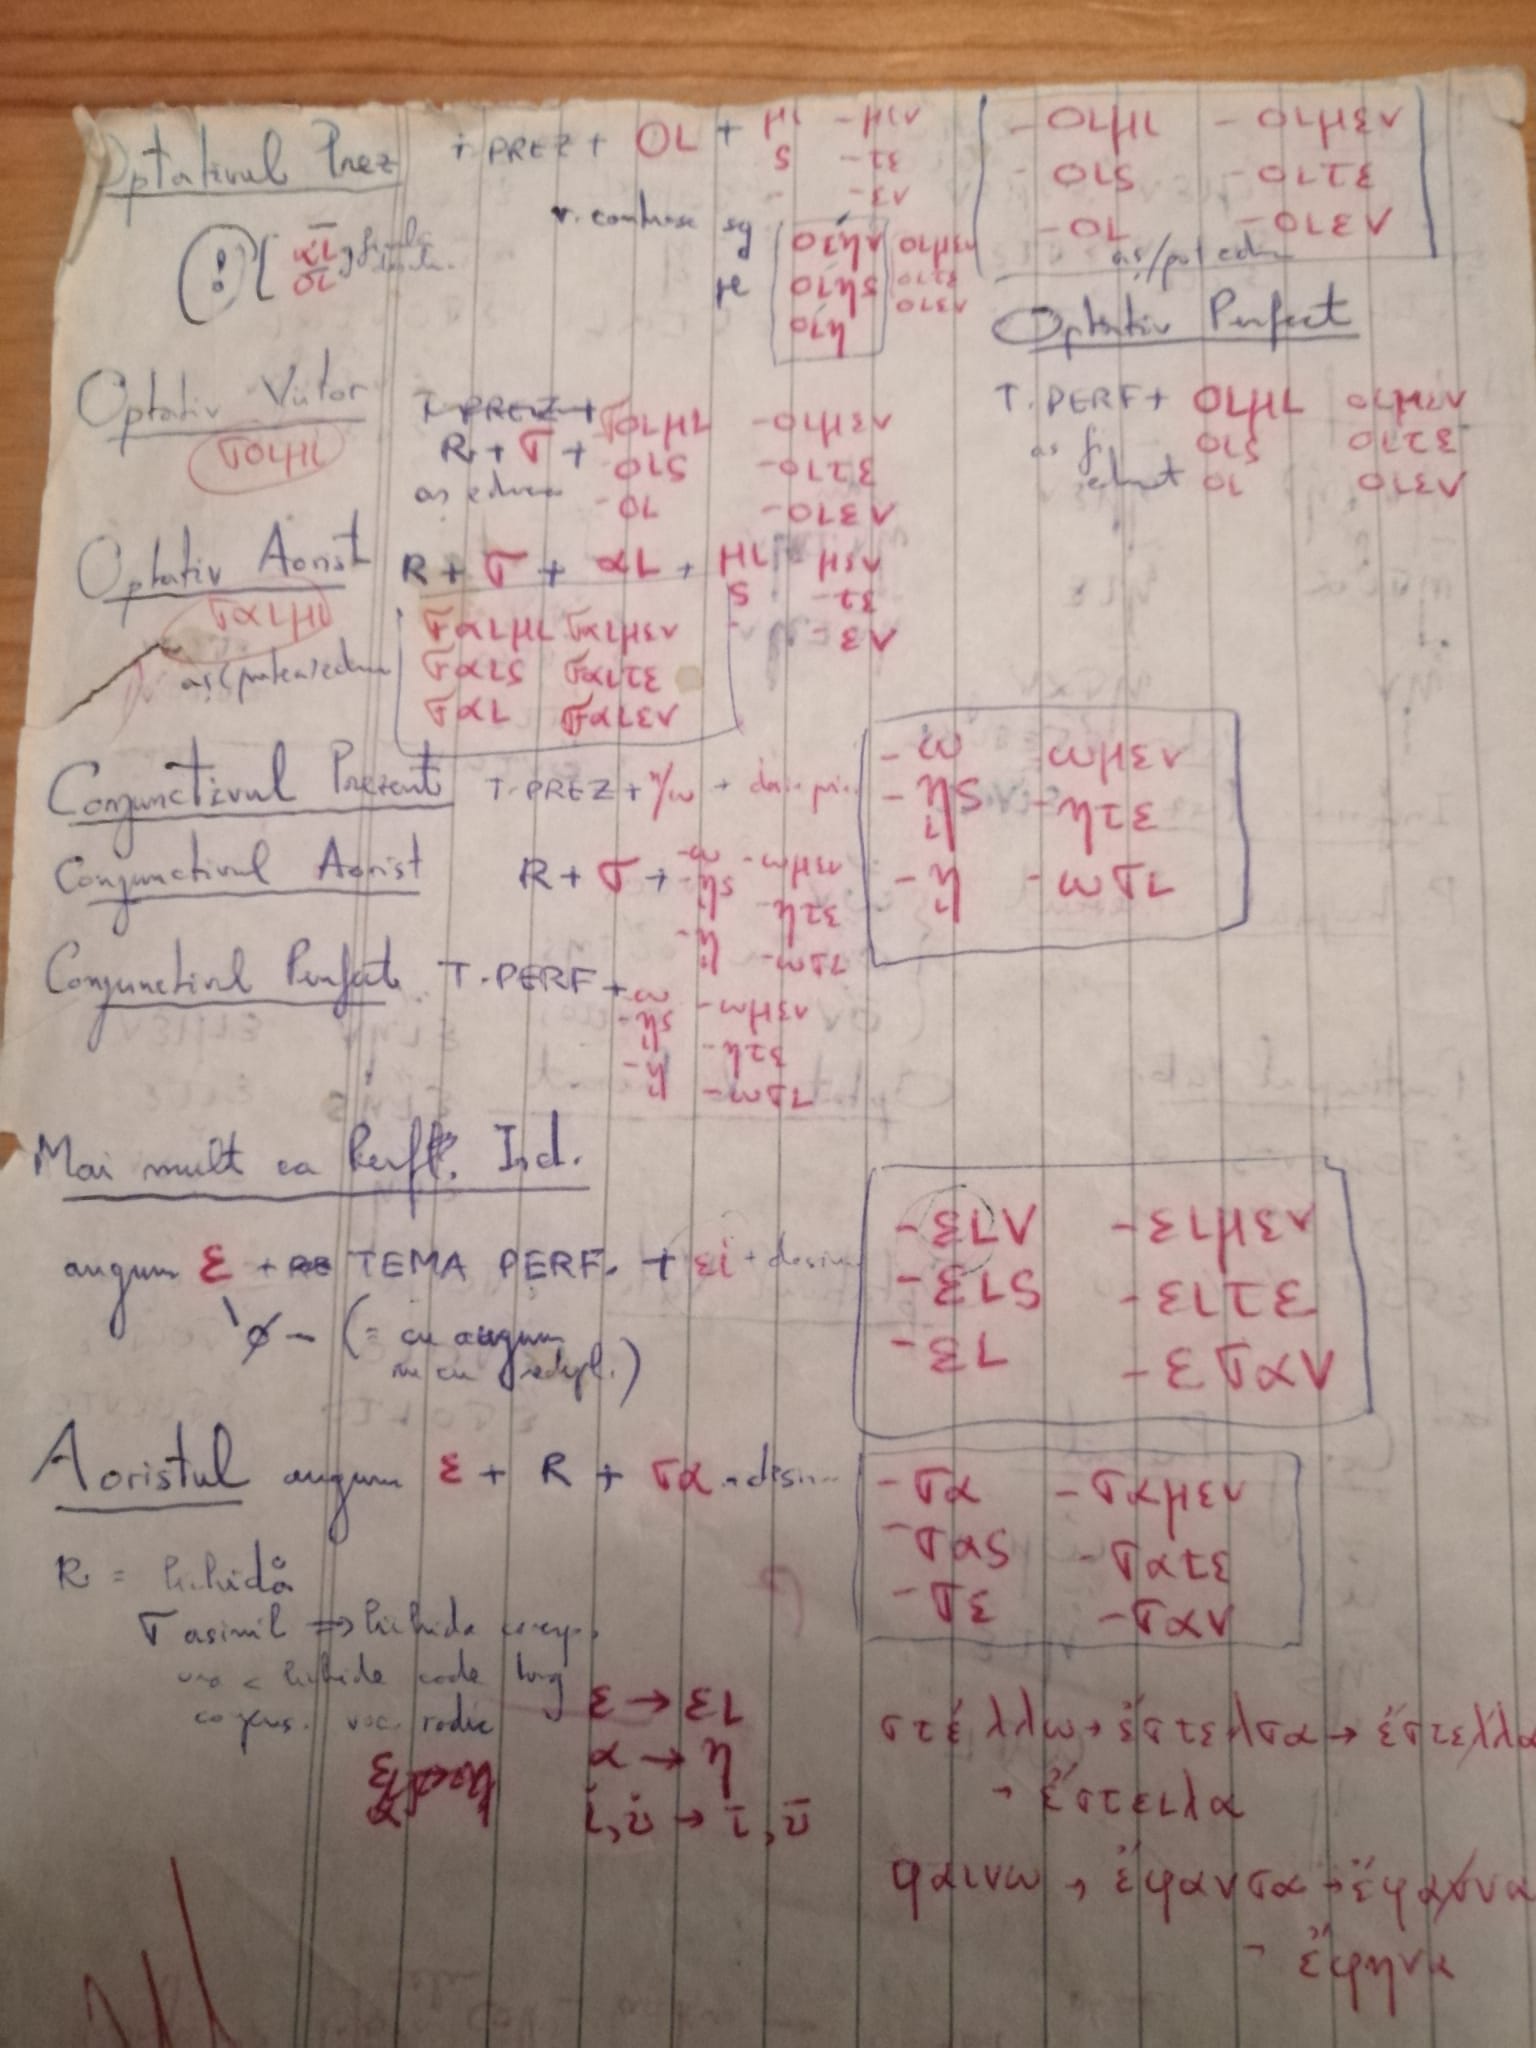 Optativul Prez T. PREZ + οι + μι -μεν
ς -τε
- -εν
-οιμι -οιμεν
-οις -οιτε
-οι -οιεν
aș/pot educa
v. contrase sg
pl
οιην οιμεν
οιης οιτε
οιη οιεν
! αι
οι
Optativ Perfect
T. PERF + οιμι οιμεν
οις οιτε
οι οιεν
aș fi
educat
Optativ Viitor T. PREZ +
R + σ + οιμι -οιμεν
οις -οιτε
-οι -οιεν
σοιμι
aș educa
Optativ Aorist R + σ + αι + μι -μεν
ς -τε
- -εν
σαιμι
aș (putea) educa
σαιμι σαιμεν
σαις σαιτε
σαι σαιεν
Conjunctivul Prezent T. PREZ + η/ω +
-ω -ωμεν
-ῃς -ητε
-ῃ -ωσι
Conjunctivul Aorist R + σ + -ω -ωμεν
-ῃς -ητε
-ῃ -ωσι
Conjunctivul Perfect T. PERF + -ω -ωμεν
-ῃς -ητε
-ῃ -ωσι
Mai mult ca Perft. Ind.
augum ε + TEMA PERF. + ει + desin
ø – (= cu augum
nu cu redupl.)
-ειν -ειμεν
-εις -ειτε
-ει -εσαν
Aoristul augum ε + R + σα + desin
-σα -σαμεν
-σας -σατε
-σε -σαν
R = lichidă
σ asimil ⇒ lichida coresp.
una < lichide cade lung
voc. radic
ε → ει
α → η
ῐ, ῠ → ῑ, ῡ
στέλλω → ἔστελσα → ἔστελλα
- ἔστειλα
φαινω → ἔφανσα → ἔφαννα
- ἔφηνα